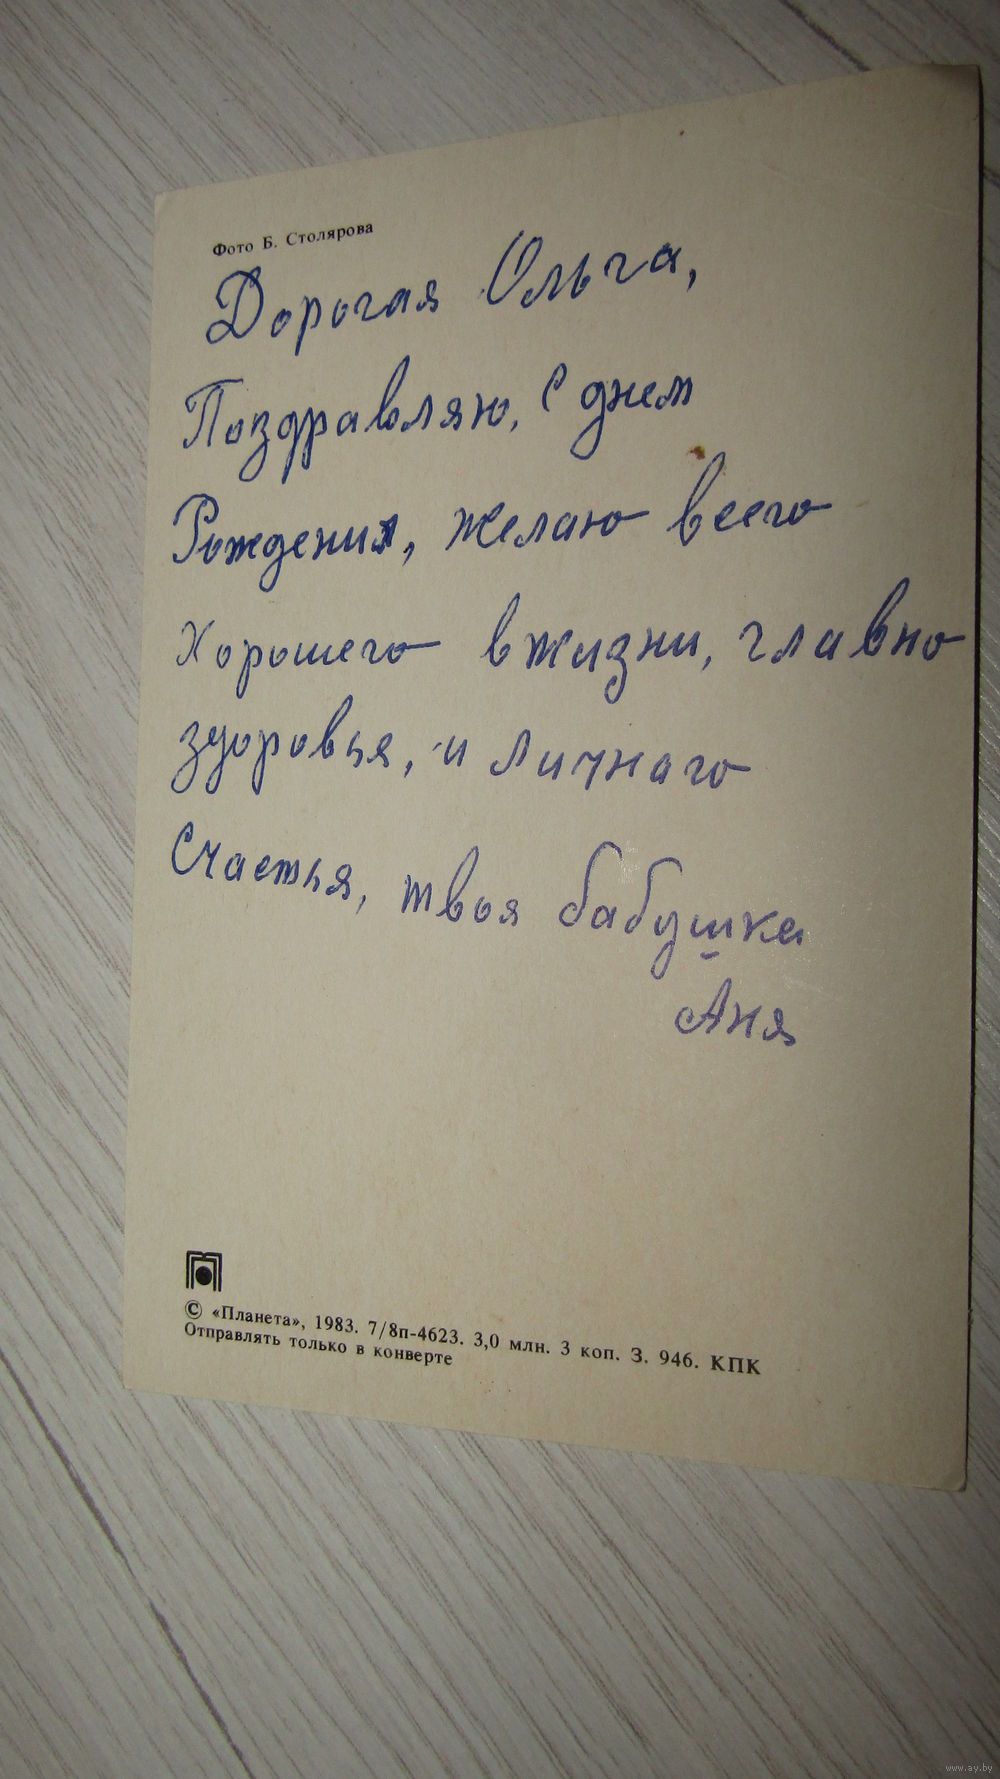 Фото Б. Столярова
Дорогая Ольга,
Поздравляю, с днем
Рождения, желаю всего
Хорошего в жизни, главно
здоровья, и личнаго
Счастья, твоя бабушка
Аня
© «Планета», 1983. 7/8п-4623. 3,0 млн. 3 коп. З. 946. КПК
Отправлять только в конверте
www.ay.by